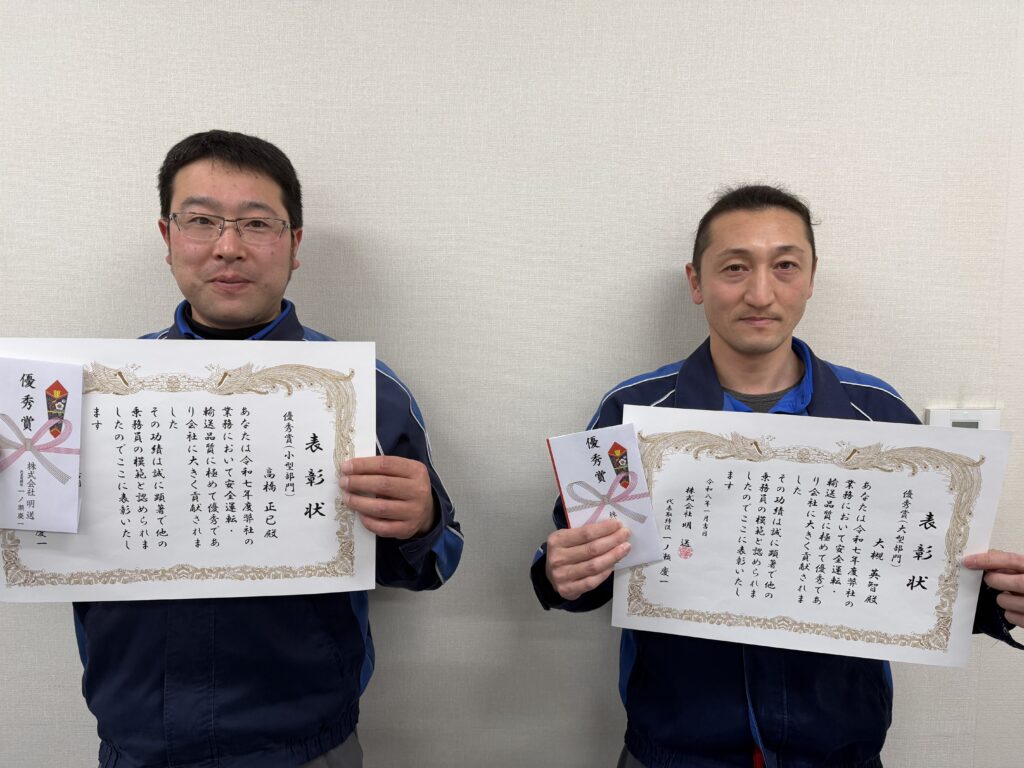 表彰状
優秀賞(小型部門)
高橋 正巳殿
あなたは令和七年度弊社の
業務において安全運転・
輸送品質に極めて優秀であ
り会社に大きく貢献されま
した
その功績は誠に顕著で他の
乗務員の模範と認められま
したのでここに表彰いたし
ます
優秀賞
株式会社 明送
一ノ瀬慶一
表彰状
優秀賞(大型部門)
大槻 英智殿
あなたは令和七年度弊社の
業務において安全運転・
輸送品質に極めて優秀であ
り会社に大きく貢献されま
した
その功績は誠に顕著で他の
乗務員の模範と認められま
したのでここに表彰いたし
ます
令和八年一月吉日
株式会社 明送
代表取締役 一ノ瀬 慶一
優秀賞
株